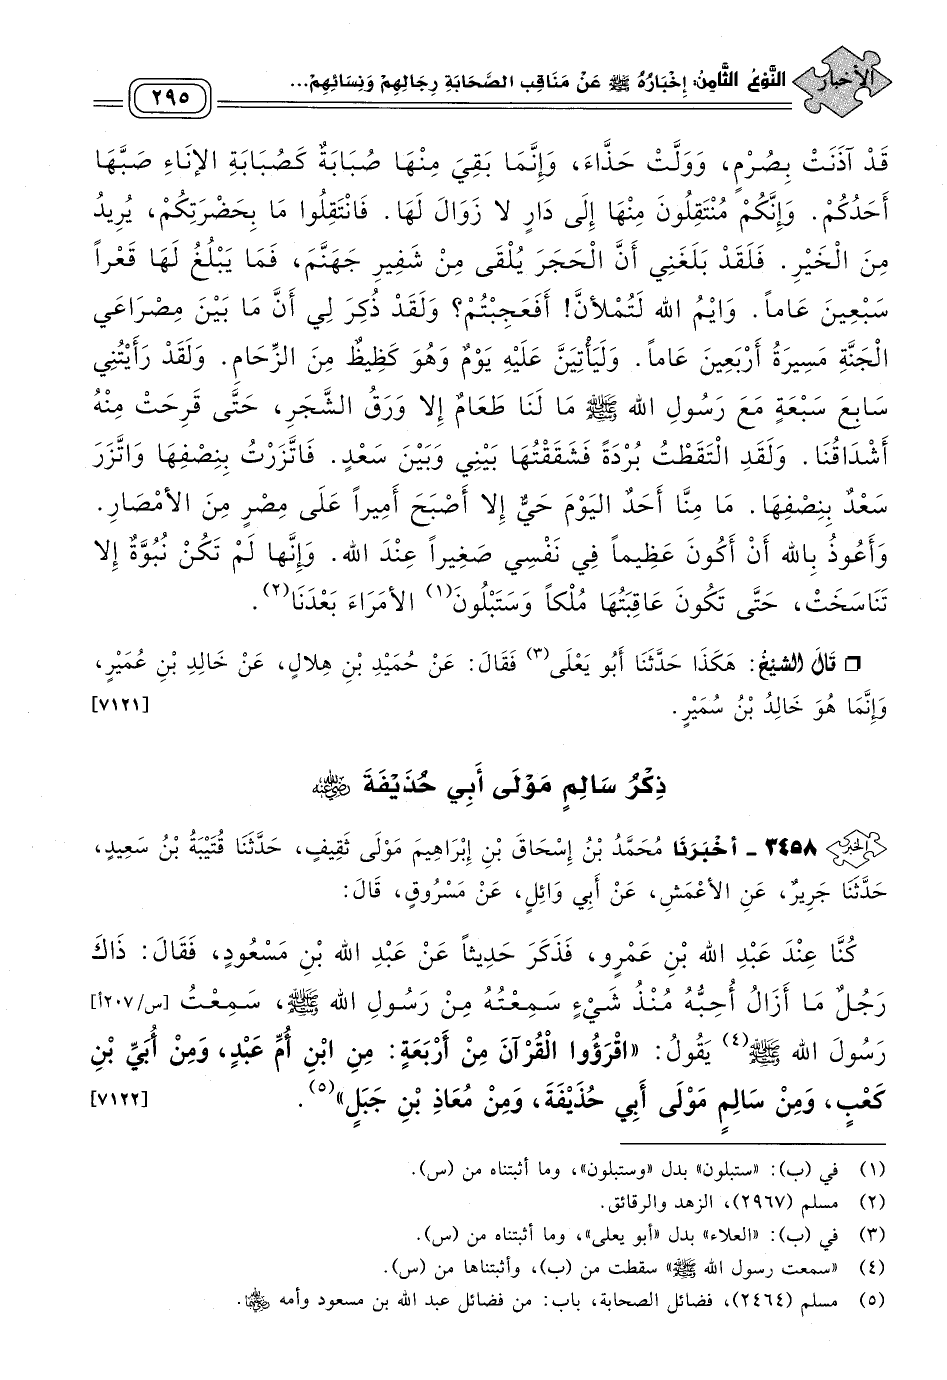 الأخبار النَّوْعُ الثَّامِنُ: إِخْبَارُهُ ﷺ عَنْ مَنَاقِبِ الصَّحَابَةِ رِجَالِهِمْ وَنِسَائِهِمْ...
٢٩٥
قَدْ آذَنَتْ بِصُرْمٍ، وَوَلَّتْ حَذَّاءَ، وَإِنَّمَا بَقِيَ مِنْهَا صُبَابَةٌ كَصُبَابَةِ الإِنَاءِ صَبَّهَا
أَحَدُكُمْ. وَإِنَّكُمْ مُنْتَقِلُونَ مِنْهَا إِلَى دَارٍ لا زَوَالَ لَهَا. فَانْتَقِلُوا مَا بِحَضْرَتِكُمْ، يُرِيدُ
مِنَ الْخَيْرِ. فَلَقَدْ بَلَغَنِي أَنَّ الْحَجَرَ يُلْقَى مِنْ شَفِيرِ جَهَنَّمَ، فَمَا يَبْلُغُ لَهَا قَعْراً
سَبْعِينَ عَاماً. وَايْمُ الله لَتُمْلأَنَّ! أَفَعَجِبْتُمْ؟ وَلَقَدْ ذُكِرَ لِي أَنَّ مَا بَيْنَ مِصْرَاعَي
الْجَنَّةِ مَسِيرَةُ أَرْبَعِينَ عَاماً. وَلَيَأْتِيَنَّ عَلَيْهِ يَوْمٌ وَهُوَ كَظِيظٌ مِنَ الزِّحَامِ. وَلَقَدْ رَأَيْتُنِي
سَابِعَ سَبْعَةٍ مَعَ رَسُولِ الله ﷺ مَا لَنَا طَعَامٌ إِلا وَرَقُ الشَّجَرِ، حَتَّى قَرِحَتْ مِنْهُ
أَشْدَاقُنَا. وَلَقَدِ الْتَقَطْتُ بُرْدَةً فَشَقَقْتُهَا بَيْنِي وَبَيْنَ سَعْدٍ. فَاتَّزَرْتُ بِنِصْفِهَا وَاتَّزَرَ
سَعْدٌ بِنِصْفِهَا. مَا مِنَّا أَحَدٌ الْيَوْمَ حَيٌّ إِلا أَصْبَحَ أَمِيراً عَلَى مِصْرٍ مِنَ الأَمْصَارِ.
وَأَعُوذُ بِالله أَنْ أَكُونَ عَظِيماً فِي نَفْسِي صَغِيراً عِنْدَ الله. وَإِنَّها لَمْ تَكُنْ نُبُوَّةٌ إِلا
تَنَاسَخَتْ، حَتَّى تَكُونَ عَاقِبَتُهَا مُلْكاً وَسَتَبْلُونَ(١) الأمَرَاءَ بَعْدَنَا(٢).
❒ قَالَ الشَّيْخُ: هَكَذَا حَدَّثَنَا أَبُو يَعْلَى(٣) فَقَالَ: عَنْ حُمَيْدِ بْنِ هِلالٍ، عَنْ خَالِدِ بْنِ عُمَيْرٍ،
وَإِنَّمَا هُوَ خَالِدُ بْنُ سُمَيْرٍ. [٧١٢١]
ذِكْرُ سَالِمٍ مَوْلَى أَبِي حُذَيْفَةَ رضي الله عنه
الخبر ٣٤٥٨ ـ أَخْبَرَنَا مُحَمَّدُ بْنُ إِسْحَاقَ بْنِ إِبْرَاهِيمَ مَوْلَى ثَقِيفٍ، حَدَّثَنَا قُتَيْبَةُ بْنُ سَعِيدٍ،
حَدَّثَنَا جَرِيرٌ، عَنِ الأَعْمَشِ، عَنْ أَبِي وَائِلٍ، عَنْ مَسْرُوقٍ، قَالَ:
كُنَّا عِنْدَ عَبْدِ الله بْنِ عَمْرٍو، فَذَكَرَ حَدِيثاً عَنْ عَبْدِ الله بْنِ مَسْعُودٍ، فَقَالَ: ذَاكَ
رَجُلٌ مَا أَزَالُ أُحِبُّهُ مُنْذُ شَيْءٍ سَمِعْتُهُ مِنْ رَسُولِ الله ﷺ، سَمِعْتُ [س/٢٠٧أ]
رَسُولَ الله ﷺ(٤) يَقُولُ: «اقْرَؤُوا الْقُرْآنَ مِنْ أَرْبَعَةٍ: مِنِ ابْنِ أُمِّ عَبْدٍ، وَمِنْ أُبَيِّ بْنِ
كَعْبٍ، وَمِنْ سَالِمٍ مَوْلَى أَبِي حُذَيْفَةَ، وَمِنْ مُعَاذِ بْنِ جَبَلٍ»(٥). [٧١٢٢]
(١) في (ب): «ستبلون» بدل «وستبلون»، وما أثبتناه من (س).
(٢) مسلم (٢٩٦٧)، الزهد والرقائق.
(٣) في (ب): «العلاء» بدل «أبو يعلى»، وما أثبتناه من (س).
(٤) «سمعت رسول الله ﷺ» سقطت من (ب)، وأثبتناها من (س).
(٥) مسلم (٢٤٦٤)، فضائل الصحابة، باب: من فضائل عبد الله بن مسعود وأمه رضي الله عنهما.